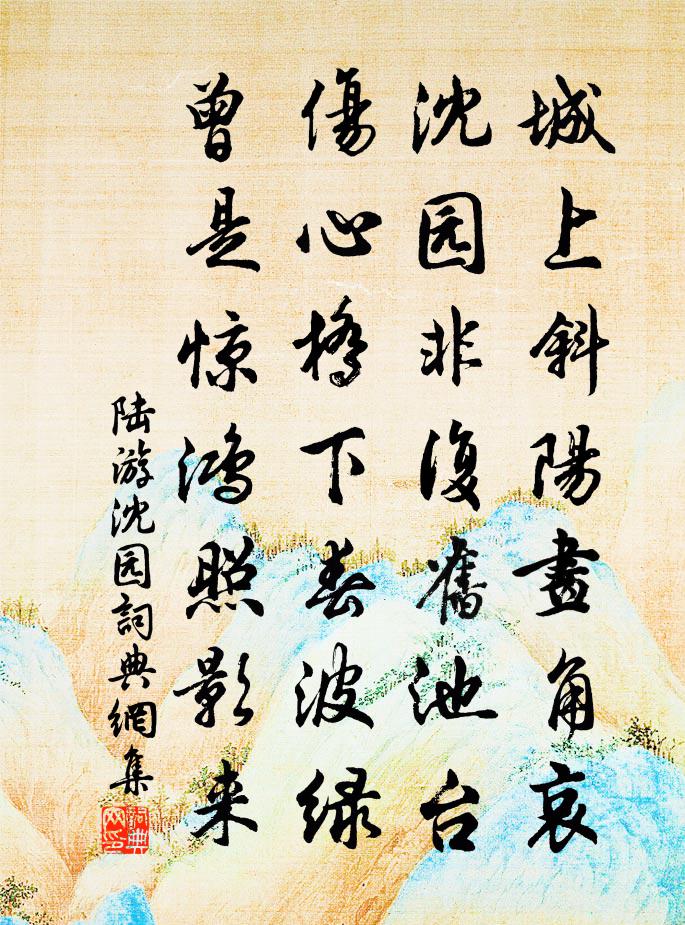 城上斜陽畫角哀
沈园非復舊池台
傷心橋下春波绿
曾是惊鸿照影来
陆游沈园詞典網集
詞典网印